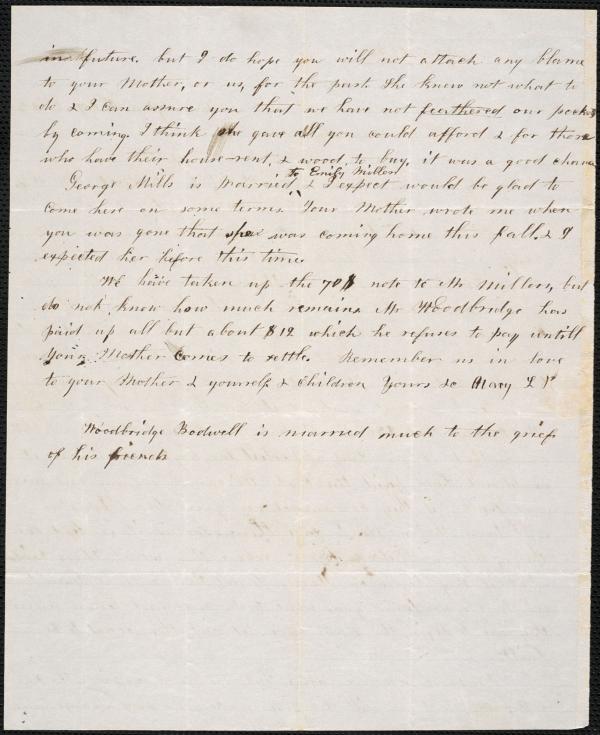 in future. but I do hope you will not attach any blame
to your Mother, or us, for the past. She knew not what to
do & I can assure you that we have not feathered our pockets
by coming. I think she gave all you could afford & for those
who have their house-rent, & wood, to buy, it was a good chance
to Emily Miller
George Mills is married, & I expect would be glad to
come here on some terms. Your Mother wrote me when
you was gone that she was coming home this fall. & I
expected her before this time.
We have taken up the 70$ note to Mr Miller, but
do not know how much remains Mr Woodbridge has
paid up all but about $12 which he refuses to pay untill
your Mother comes to settle. Remember us in love
to your Mother & yourself & children Yours &c Mary L P
Woodbridge Bodwell is married much to the grief
of his friends